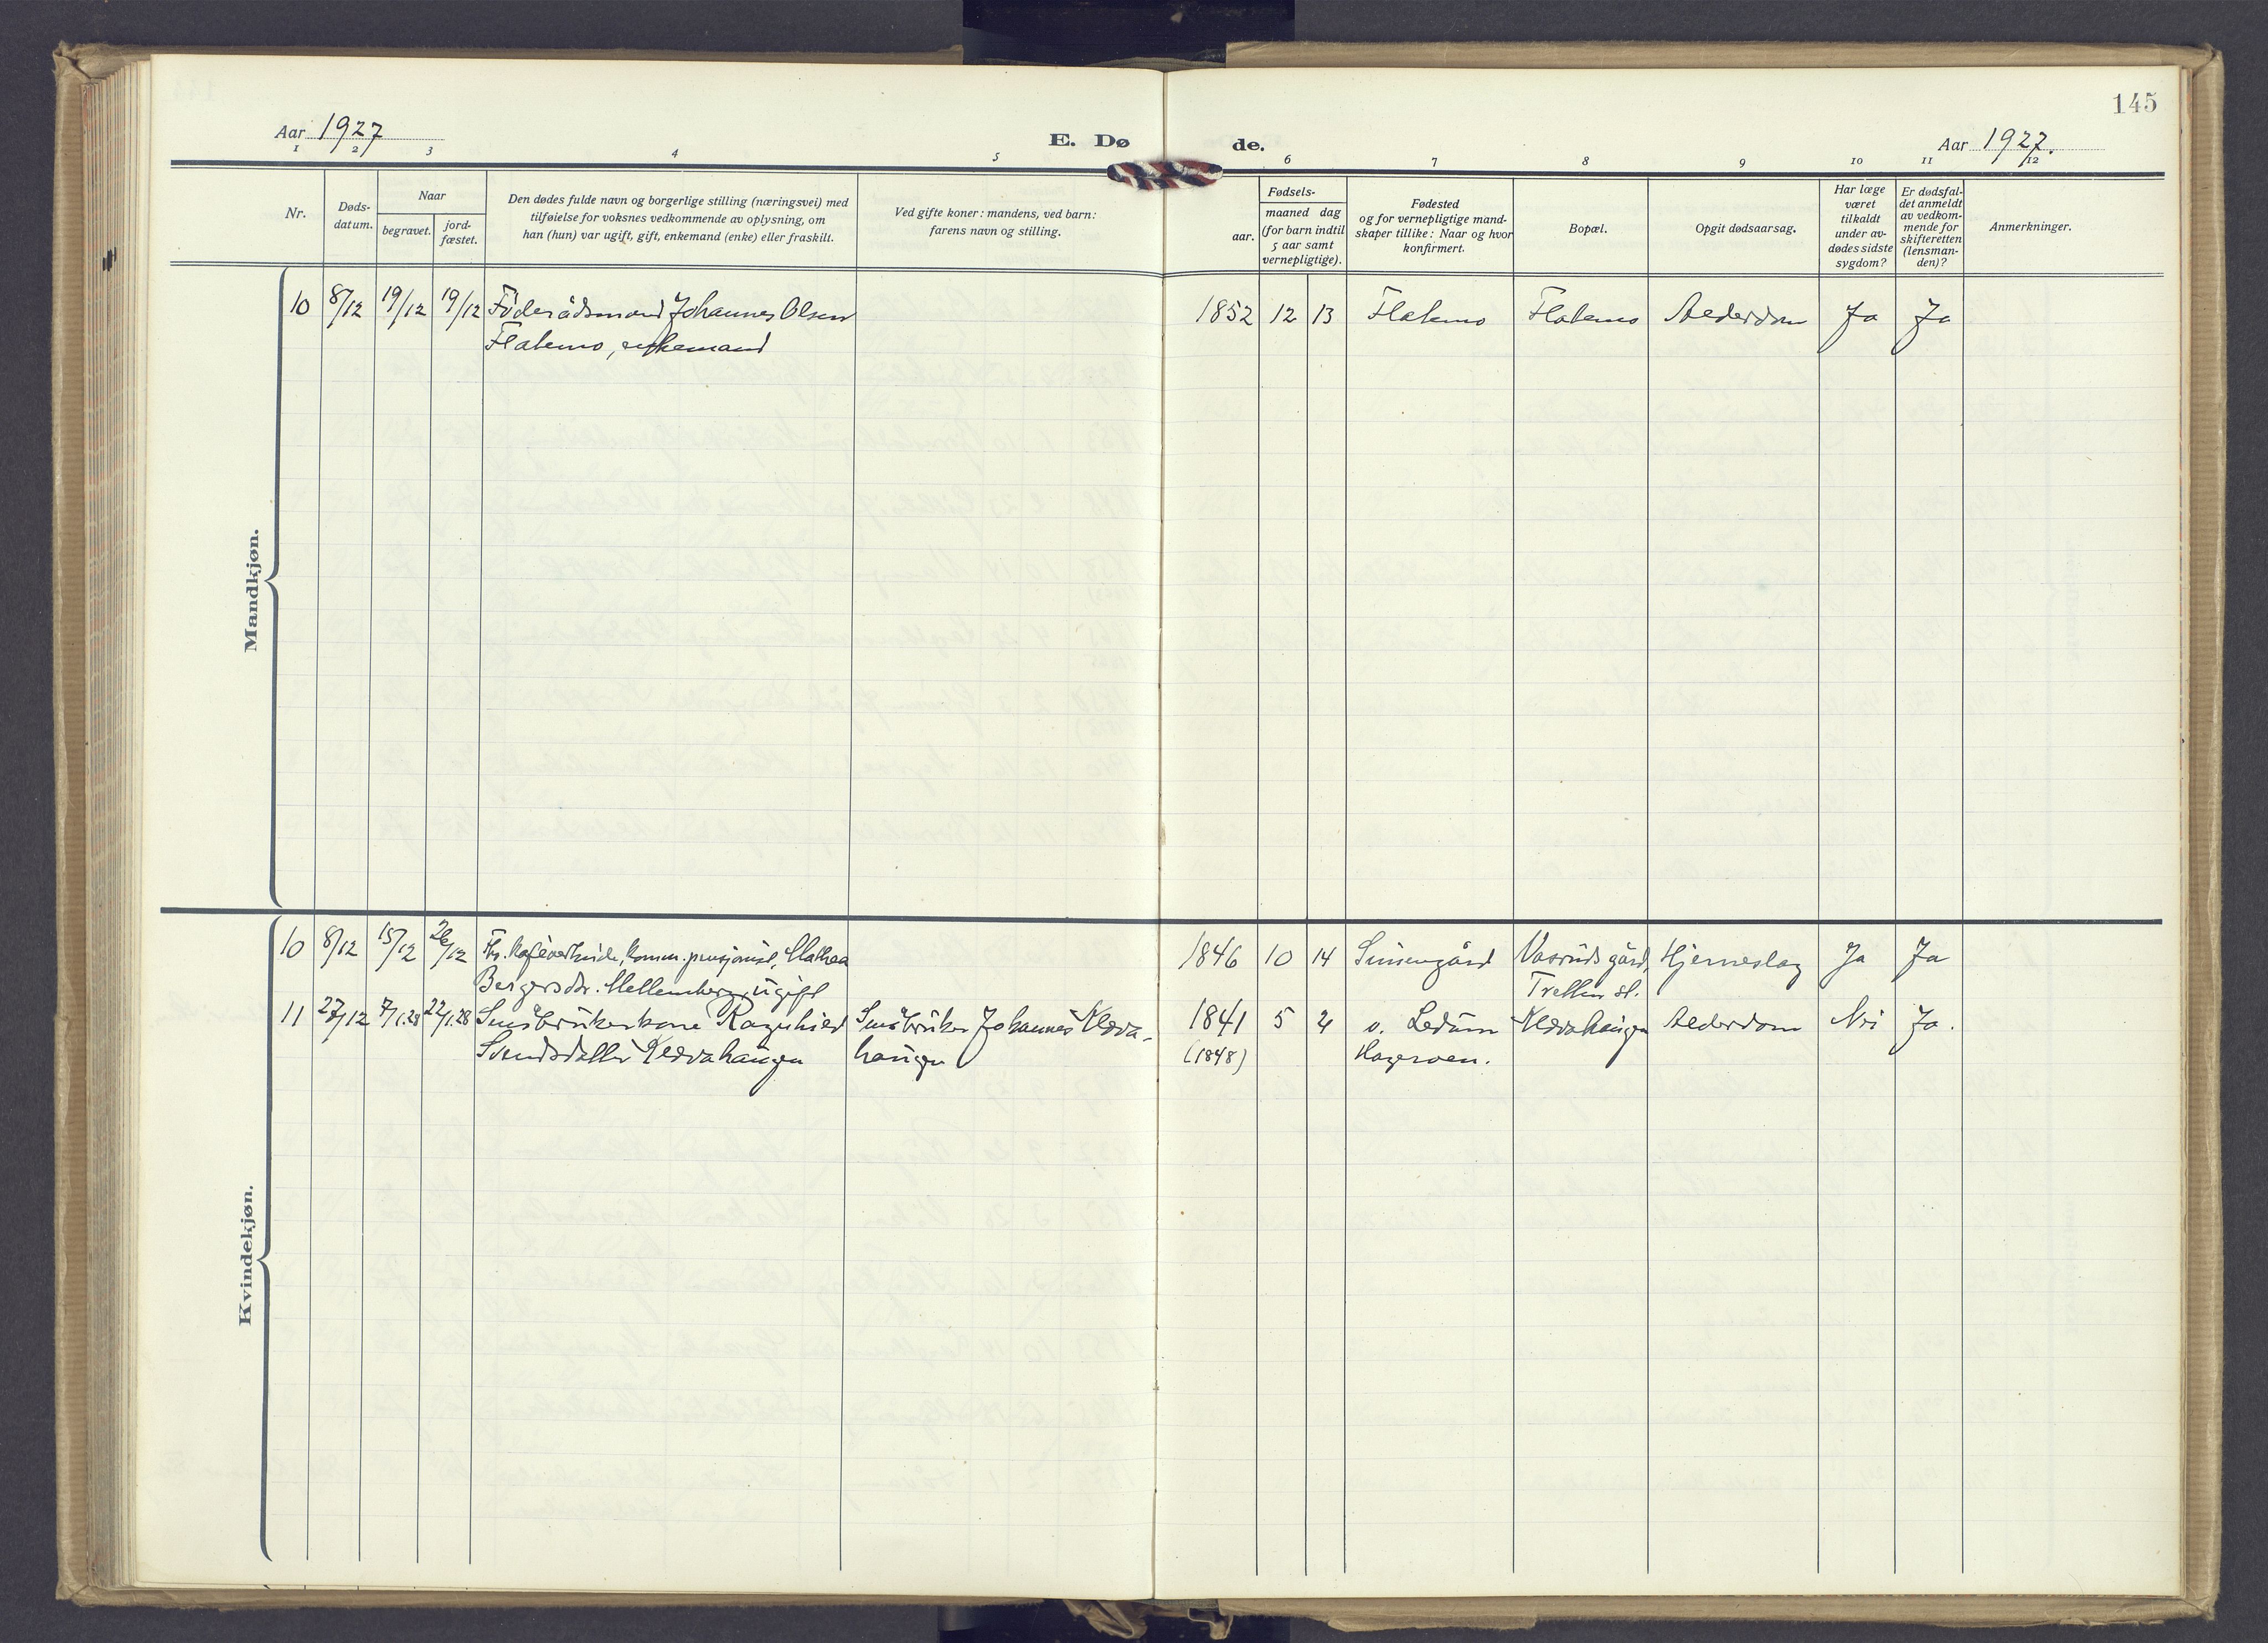 145
Aar 1927
E. Dø
de.
Aar 1927.
1 2 3 4 5 6 7 8 9 10 11 12
Nr.
Døds-
datum.
Naar
begravet.
jord-
fæstet.
Den dødes fulde navn og borgerlige stilling (næringsvei) med
tilføielse for voksnes vedkommende av oplysning, om
han (hun) var ugift, gift, enkemand (enke) eller fraskilt.
Ved gifte koner: mandens, ved barn:
farens navn og stilling.
Fødsels-
aar.
maaned dag
(for barn indtil
5 aar samt
vernepligtige).
Fødested
og for vernepligtige mand-
skaper tillike: Naar og hvor
konfirmert.
Bopæl.
Opgit dødsaarsag.
Har læge
været
tilkaldt
under av-
dødes sidste
sygdom?
Er dødsfal-
det anmeldt
av vedkom-
mende for
skifteretten
(lensman-
den)?
Anmerkninger.
Mandkjøn.
10 8/12 19/12 19/12 Föderådsmand Johannes Olsen 1852 12 13 Flatemo Flatemo Alderdom Ja Ja
Flatemo, enkemand
Kvindekjøn.
10 8/12 15/12 26/12 Fhv. kaféværtinde, komm. pensjonist, Mathea 1846 10 14 Vasruds gård, Hjerneslag Ja Ja
Bergersdtr. Mellemberg, ugift Tretten st.
11 27/12 7/1.28 22/1.28 Småbrukerkone Ragnhild Småbruker Johannes Kleva- 1841 5 o. Ledum Klevahaugen Alderdom Nei Ja.
Svendsdatter Klevahaugen haugen (1848) Hageroen.